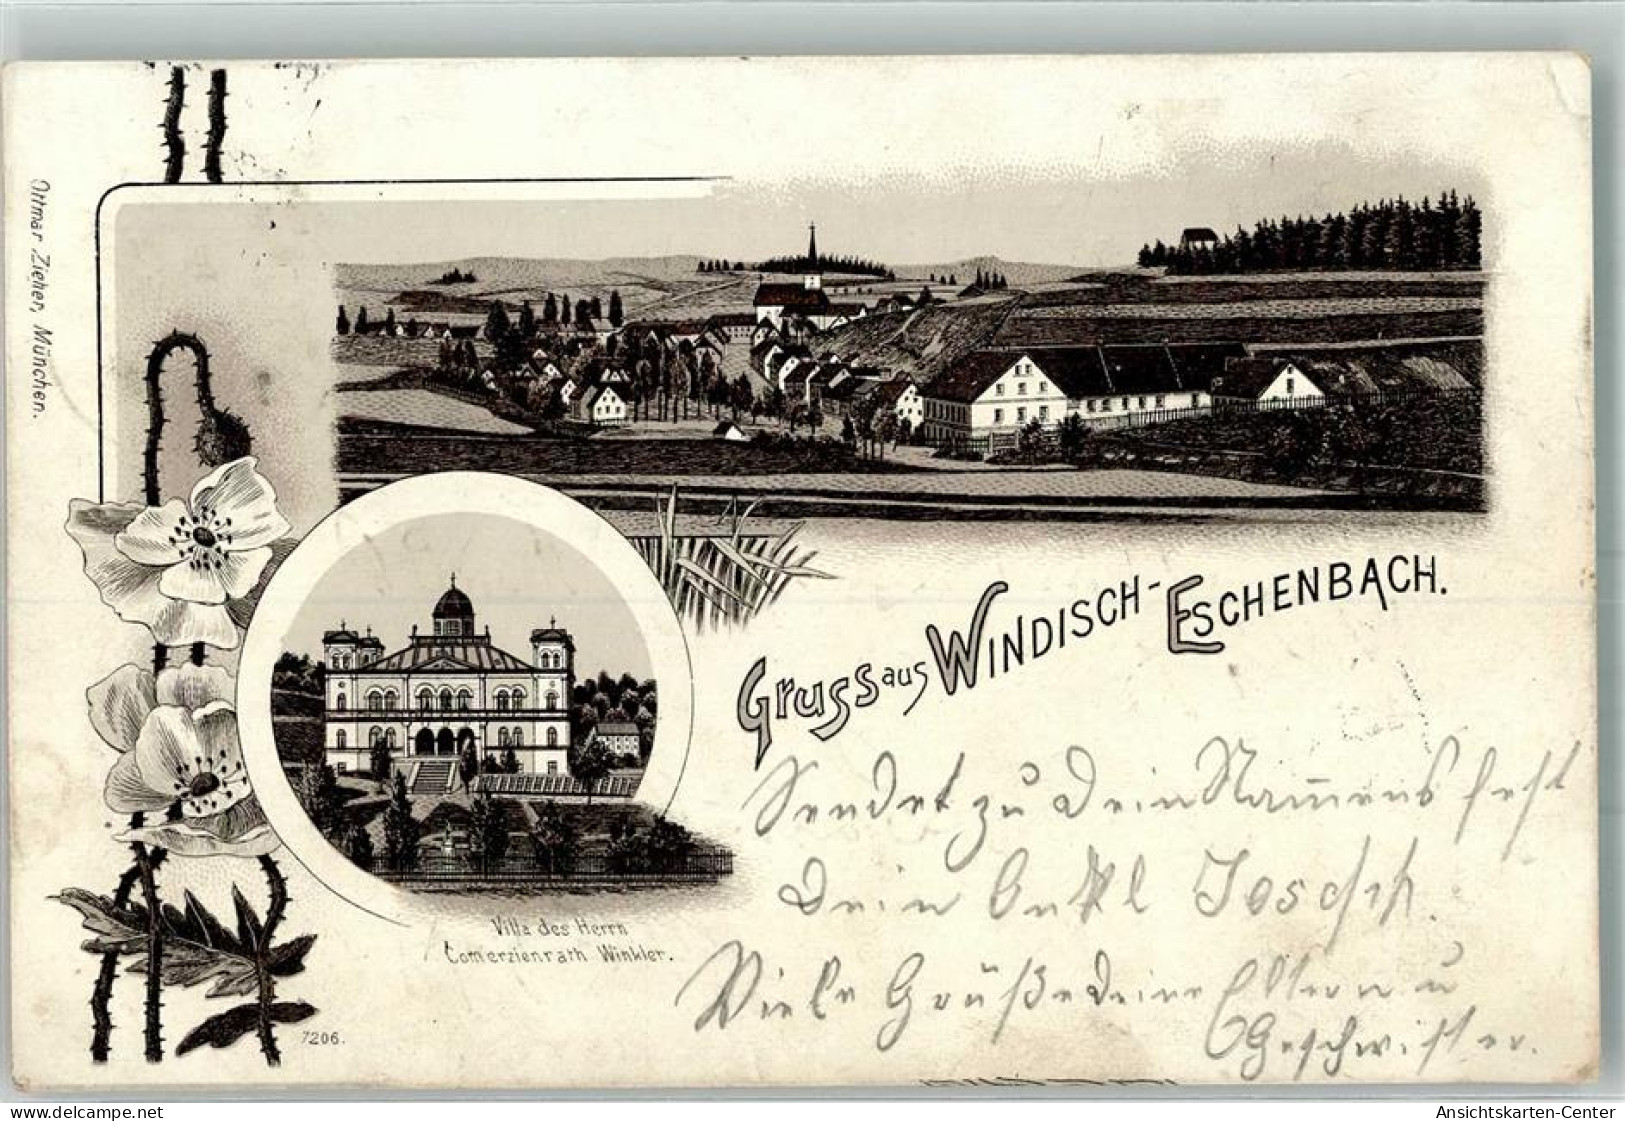 Ottmar Zieher, München.
Gruss aus Windisch-Eschenbach.
Sendet zu Dein Namensfest
Dein Onkel Josch.
Viele Grüße Deine Eltern u
Geschwister.
Villa des Herrn
Comerzienrath Winkler.
7206.
www.delcampe.net
Ansichtskarten-Center